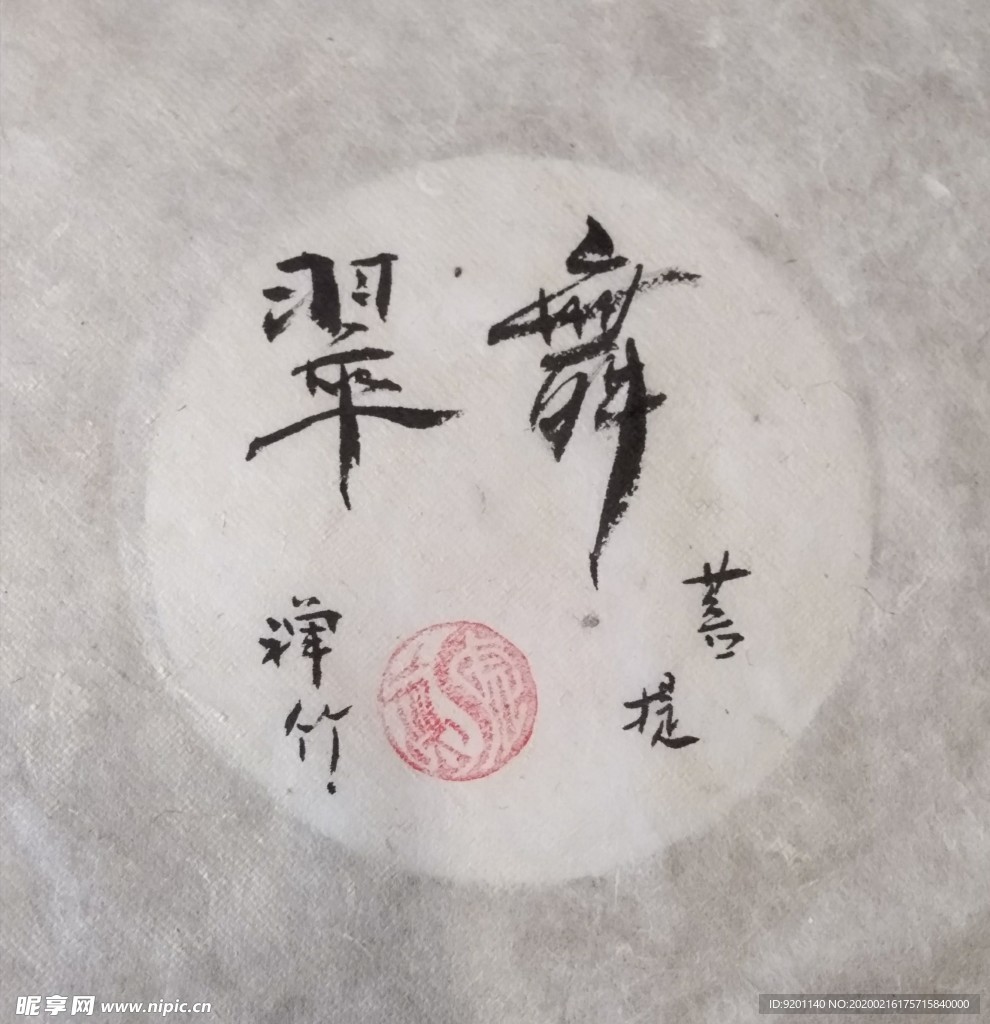 舞翠
菩提
禅竹
昵享网 www.nipic.cn
ID:9201140 NO:20200216175715840000